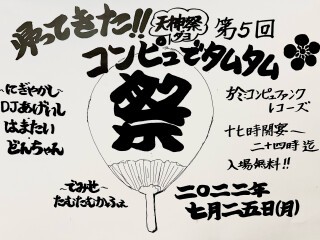 帰ってきた!!
天神祭
トゥヨ
第5回
コンピュでタムタム
祭
にぎやかし
DJあげいし
はまたい
どんちゃん
於 コンピュファンク
レコーズ
十七時開宴〜
二十四時迄
入場無料!!
でみせ〜
たむたむかふぇ
二〇二二年
七月二五日(月)